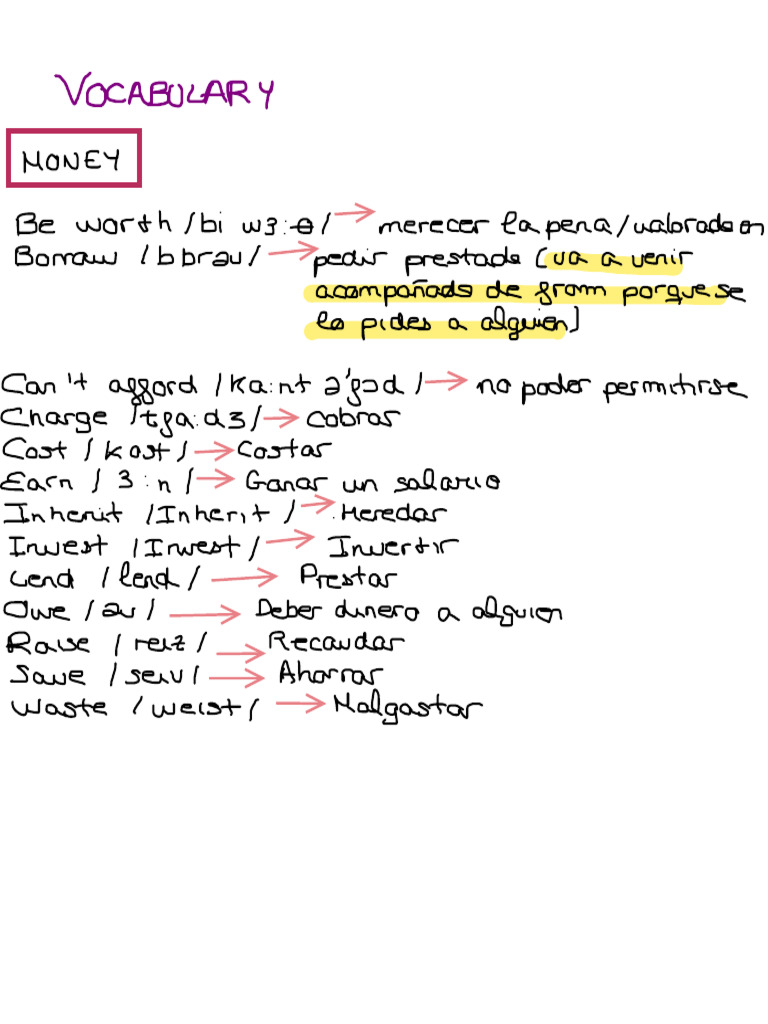 VOCABULARY
MONEY
Be worth /bi wɜ:θ/ → merecer la pena/valorado en
Borrow /bɒrəʊ/ → pedir prestado (va a venir
acompañado de from porque se
lo pides a alguien)
Can't afford /ka:nt ə'fɔd/ → no poder permitirse
Charge /tʃa:dʒ/ → cobrar
Cost /kost/ → Costar
Earn /ɜ:n/ → Ganar un salario
Inherit /Inherıt/ → Heredar
Invest /Invest/ → Invertir
Lend /lend/ → Prestar
Owe /əu/ → Deber dinero a alguien
Raise /reız/ → Recaudar
Save /seıv/ → Ahorrar
Waste /weıst/ → Malgastar